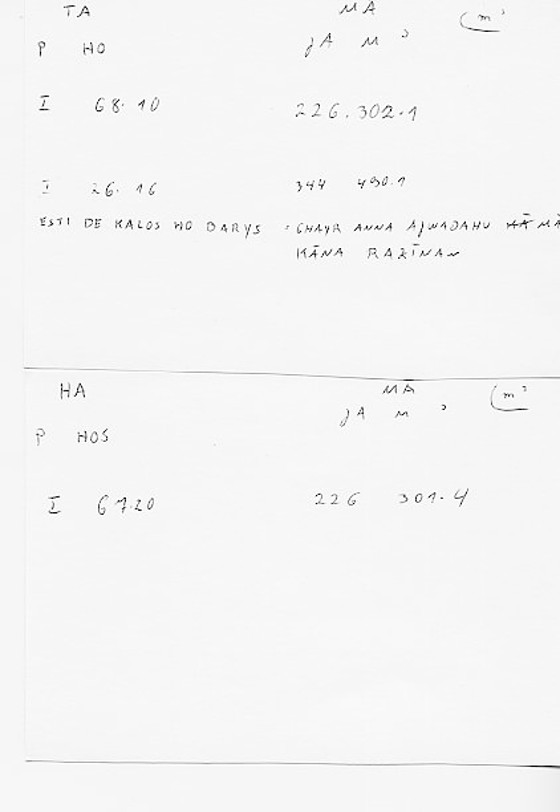 TA MA (m³
P HO JA M ʾ
I 68.10 226.302.1
I 26.16 344 490.1
ESTI DE KALOS HO BARYS : GHAYR ANNA AJWADAHU MĀ
KĀNA RAZĪNAN
HA MA (m³
P HOS JA M ʾ
I 67.20 226 301.4